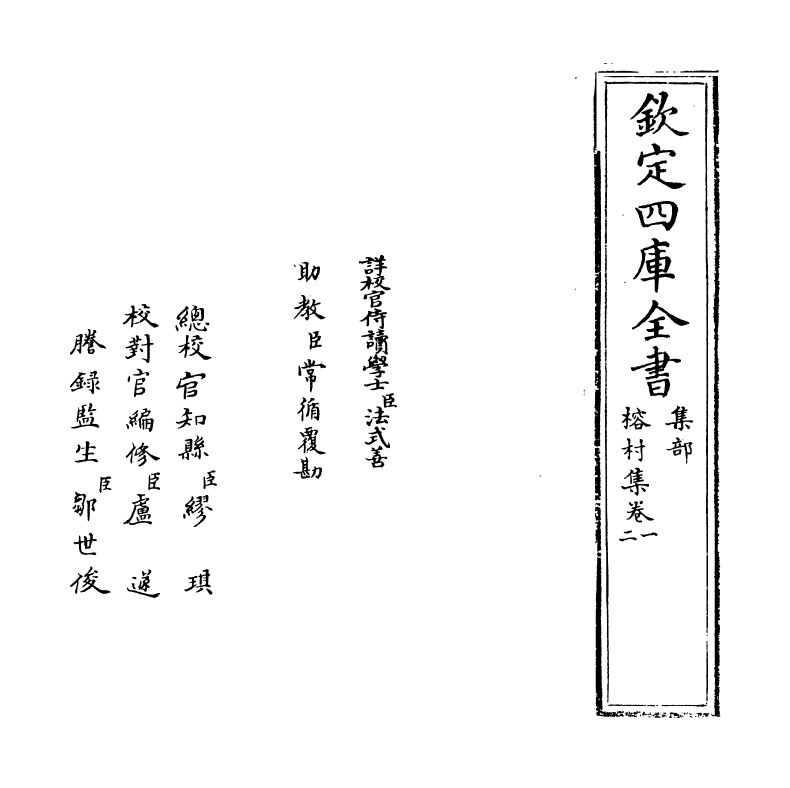 欽定四庫全書
集部
榕村集卷一二
詳校官侍讀學士臣法式善
助教臣常循覆勘
總校官知縣臣繆琪
校對官編修臣盧遂
謄録監生臣鄒世俊